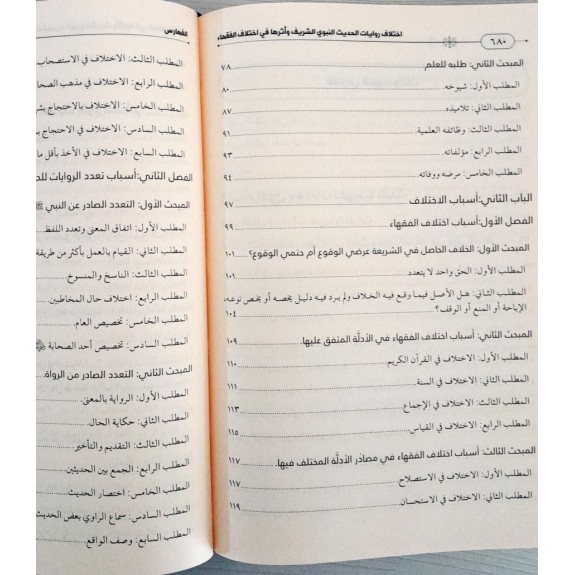 اختلاف روايات الحديث النبوي الشريف وأثرها في اختلاف الفقهاء
٦٨٠
المبحث الثاني: طلبه للعلم ٧٨
المطلب الأول: شيوخه ٨٠
المطلب الثاني: تلاميذه ٨٧
المطلب الثالث: وظائفه العلمية ٩١
المطلب الرابع: مؤلفاته ٩٣
المطلب الخامس: مرضه ووفاته ٩٤
الباب الثاني: أسباب الاختلاف ٩٧
الفصل الأول: أسباب اختلاف الفقهاء ٩٩
المبحث الأول: الخلاف الحاصل في الشريعة عرضي الوقوع أم حتمي الوقوع؟ ١٠١
المطلب الأول: الحق واحد لا يتعدد ١٠١
المطلب الثاني: هل الأصل فيما وقع فيه الخلاف ولم يرد فيه دليل يخصه أو يخص نوعه،
الإباحة أو المنع أو الوقف؟ ١٠٤
المبحث الثاني: أسباب اختلاف الفقهاء في الأدلَّة المتفق عليها. ١٠٩
المطلب الأول: الاختلاف في القرآن الكريم ١١٠
المطلب الثاني: الاختلاف في السنة ١١١
المطلب الثالث: الاختلاف في الإجماع ١١٣
المطلب الرابع: الاختلاف في القياس ١١٥
المبحث الثالث: أسباب اختلاف الفقهاء في مصادر الأدلَّة المختلف فيها. ١١٧
المطلب الأول: الاختلاف في الاستصلاح ١١٧
المطلب الثاني: الاختلاف في الاستحسان ١١٩
الفهارس
المطلب الثالث: الاختلاف في الاستصحاب
المطلب الرابع: الاختلاف في مذهب الصحا
المطلب الخامس: الاختلاف بالاحتجاج بشر
المطلب السادس: الاختلاف في الاحتجاج ب
المطلب السابع: الاختلاف في الأخذ بأقل ما
الفصل الثاني: أسباب تعدد الروايات للحد
المبحث الأول: التعدد الصادر عن النبي ﷺ
المطلب الأول: اتفاق المعنى وتعدد اللفظ
المطلب الثاني: القيام بالعمل بأكثر من طريقة
المطلب الثالث: الناسخ والمنسوخ
المطلب الرابع: اختلاف حال المخاطبين
المطلب الخامس: تخصيص العام
المطلب السادس: تخصيص أحد الصحابة
المبحث الثاني: التعدد الصادر من الرواة
المطلب الأول: الرواية بالمعنى
المطلب الثاني: حكاية الحال
المطلب الثالث: التقديم والتأخير
المطلب الرابع: الجمع بين الحديثين
المطلب الخامس: اختصار الحديث
المطلب السادس: سماع الراوي بعض الحديث
المطلب السابع: وصف الواقع